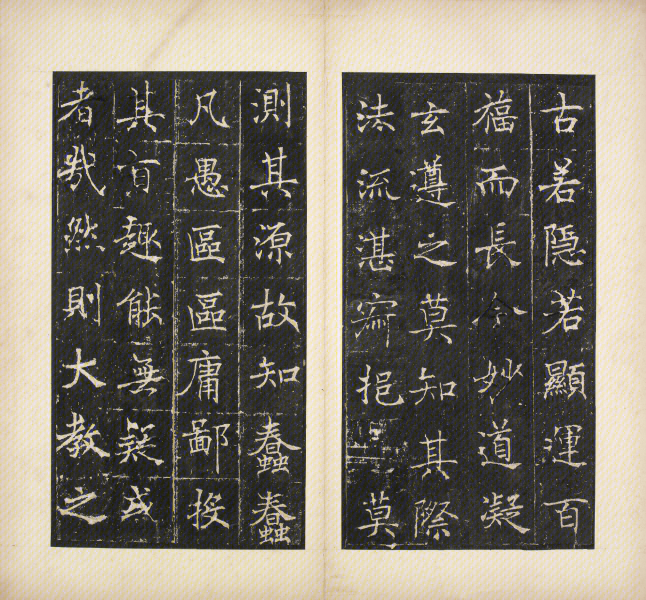 古若隱若顯運百
福而長今妙道凝
玄遵之莫知其際
法流湛寂挹莫
測其源故知蠢蠢
凡愚區區庸鄙投
其旨趣能無疑或
者哉然則大教之